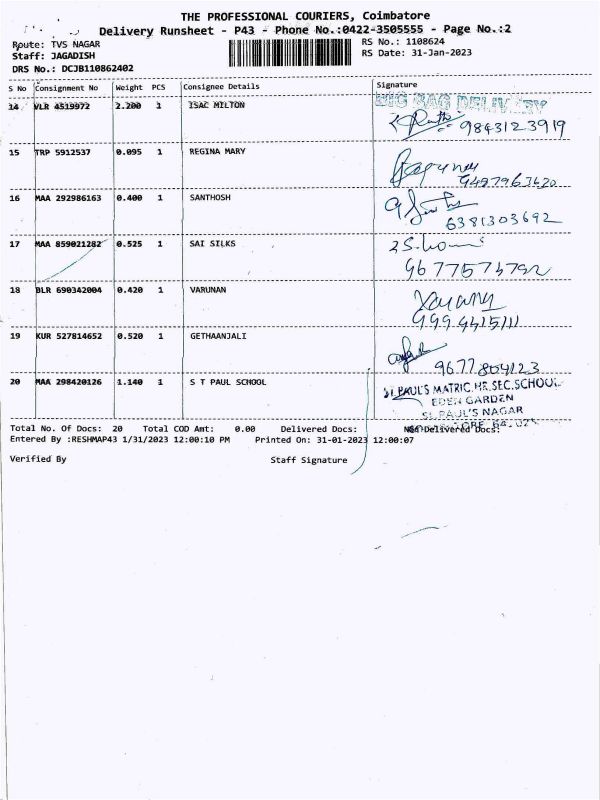 THE PROFESSIONAL COURIERS, Coimbatore
Delivery Runsheet - P43 - Phone No.:0422-3505555 - Page No.:2
Route: TVS NAGAR RS No.: 1108624
Staff: JAGADISH RS Date: 31-Jan-2023
DRS No.: DCJB110862402
S No Consignment No Weight PCS Consignee Details Signature
14 VLR 4519972 2.200 1 ISAC MILTON BIG BAG DELIVERY
9843123919
15 TRP 5912537 0.095 1 REGINA MARY
16 MAA 292986163 0.400 1 SANTHOSH
6381303692
17 MAA 859021282 0.525 1 SAI SILKS
9677574792
18 BLR 690342004 0.420 1 VARUNAN
9994415111
19 KUR 527814652 0.520 1 GETHAANJALI
9677804123
20 MAA 298420126 1.140 1 S T PAUL SCHOOL ST.PAUL'S MATRIC.HR.SEC.SCHOOL
EDEN GARDEN
ST.PAUL'S NAGAR
Total No. Of Docs: 20 Total COD Amt: 0.00 Delivered Docs: Non-Delivered Docs:
Entered By :RESHMAP43 1/31/2023 12:00:10 PM Printed On: 31-01-2023 12:00:07
Verified By Staff Signature